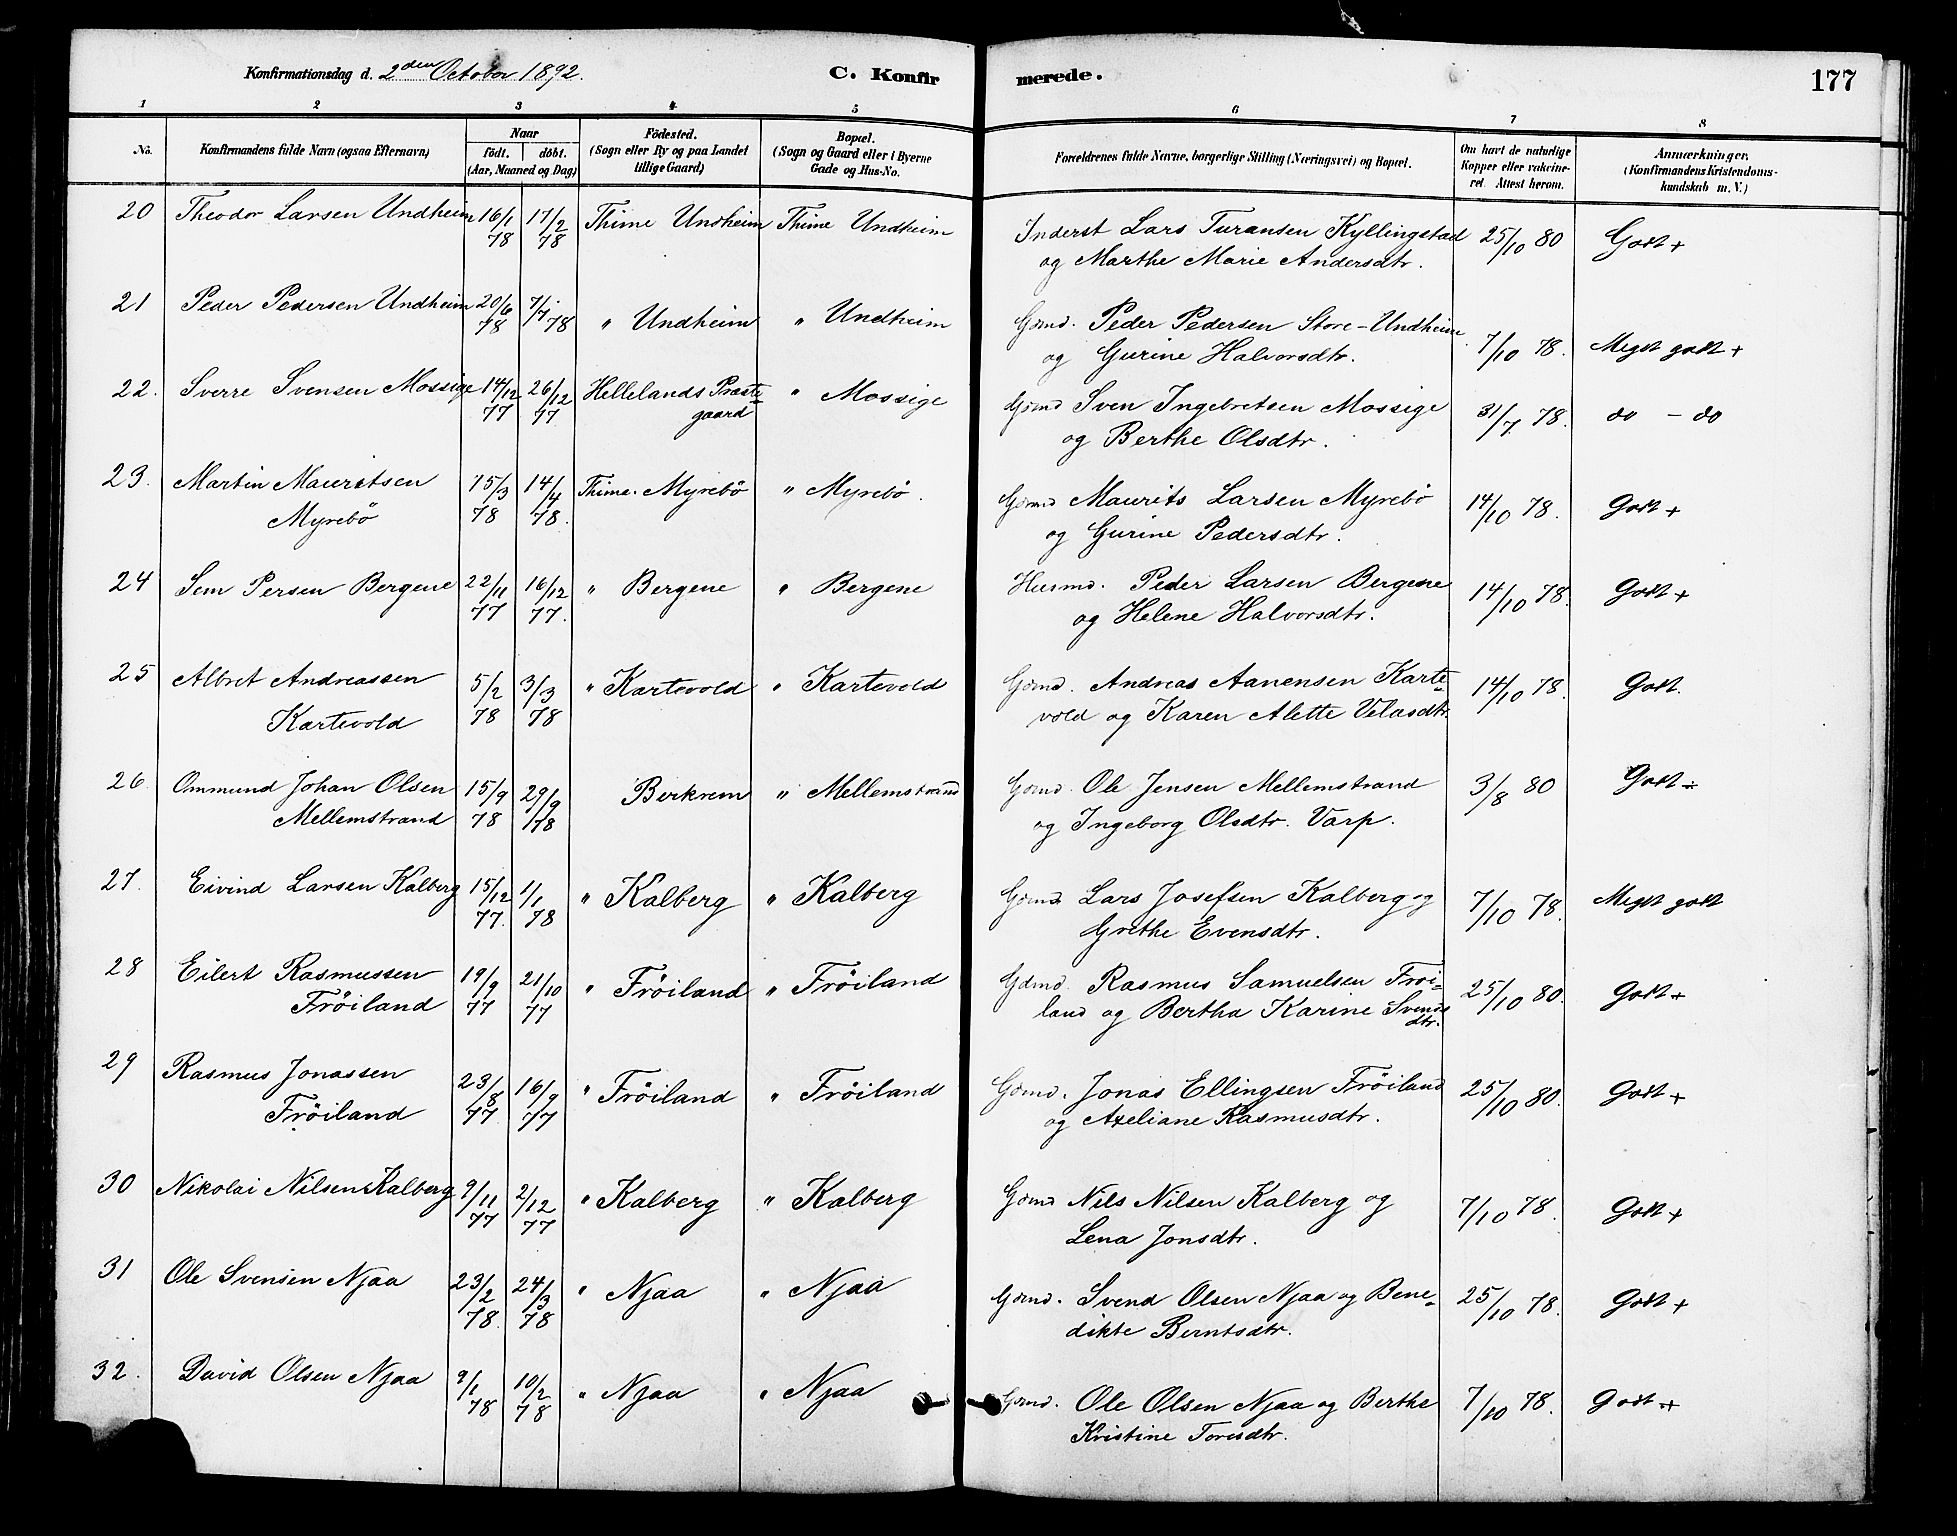 Konfirmationsdag d. 2den October 1892. C. Konfirmerede. 177
1 2 3 4 5 6 7 8
No. Konfirmandens fulde Navn (ogsaa Efternavn) Naar födt. döbt. (Aar, Maaned og Dag) Födested. (Sogn eller By og paa Landet tillige Gaard) Bopæl. (Sogn og Gaard eller i Byerne Gade og Hus-No. Forældrenes fulde Navne, borgerlige Stilling (Næringsvei) og Bopæl. Om havt de naturlige Kopper eller vakcineret. Attest herom. Anmærkninger. (Konfirmandens Kristendomskundskab m. V.)
20 Theodor Larsen Undheim 16/1 78 17/2 78 Thime Undheim Thime Undheim Inderst Lars Turansen Kyllingstad 25/10 80 Godt +
og Marthe Marie Andersdtr.
21 Peder Pedersen Undheim 20/6 78 7/7 78 " Undheim " Undheim Gdmd. Peder Pedersen Store-Undheim 7/10 78. Meget godt +
og Gurine Halvorsdtr.
22. Sverre Svensen Mossige 14/12 77 26/12 77 Hellelands Præstegaard " Mossige Gdmd Sven Ingebretsen Mossige 31/7 78. do - do
og Berthe Olsdtr.
23. Martin Mauritsen 15/3 78 14/4 78. Thime. Myrebö " Myrebö. Gdmd Maurits Larsen Myrebö 14/10 78. Godt +
Myrebö og Gurine Pedersdtr.
24 Sem Persen Bergene 22/11 77 16/12 77. " Bergene " Bergene Husmd. Peder Larsen Bergene 14/10 78. Godt +
og Helene Halvorsdtr.
25 Albret Andreassen 5/2 78 3/3 78 " Kartevold " Kartevold Gdmd. Andreas Aanensen Karte- 14/10 78. Godt.
Kartevold vold og Karen Alette Velasdtr.
26. Ommund Johan Olsen 15/9 78 29/9 78 Birkrem " Mellemstrand Gdmd. Ole Jensen Mellemstrand 3/8 80 Godt ÷
Mellemstrand og Ingeborg Olsdtr. Varp.
27. Eivind Larsen Kalberg 15/12 77. 1/1 78 " Kalberg " Kalberg Gdmd. Lars Josefsen Kalberg og 7/10 78. Meget godt
Grethe Evensdtr.
28 Eilert Rasmussen 19/9 77 21/10 77 " Fröiland " Fröiland Gdmd. Rasmus Samuelsen Fröi- 25/10 80. Godt +
Fröiland land og Bertha Karine Svendsdtr.
29 Rasmus Jonassen 23/8 77 16/9 77 " Fröiland " Fröiland Gdmd. Jonas Ellingsen Fröiland 25/10 80. Godt +
Fröiland og Axeliane Rasmusdtr.
30 Nikolai Nilsen Kalberg 9/11 77 2/12 77 " Kalberg " Kalberg Gdmd Nils Nilsen Kalberg og 7/10 78. Godt +
Lena Jonsdtr.
31 Ole Svensen Njaa 23/2 78. 24/3 78 " Njaa " Njaa Gdmd. Svend Olsen Njaa og Bene- 25/10 78. Godt +
dikte Berntsdtr.
32. David Olsen Njaa 9/1 78 10/2 78 " Njaa " Njaa Gdmd. Ole Olsen Njaa og Berthe 7/10 78. Godt +
Kristine Toresdtr.